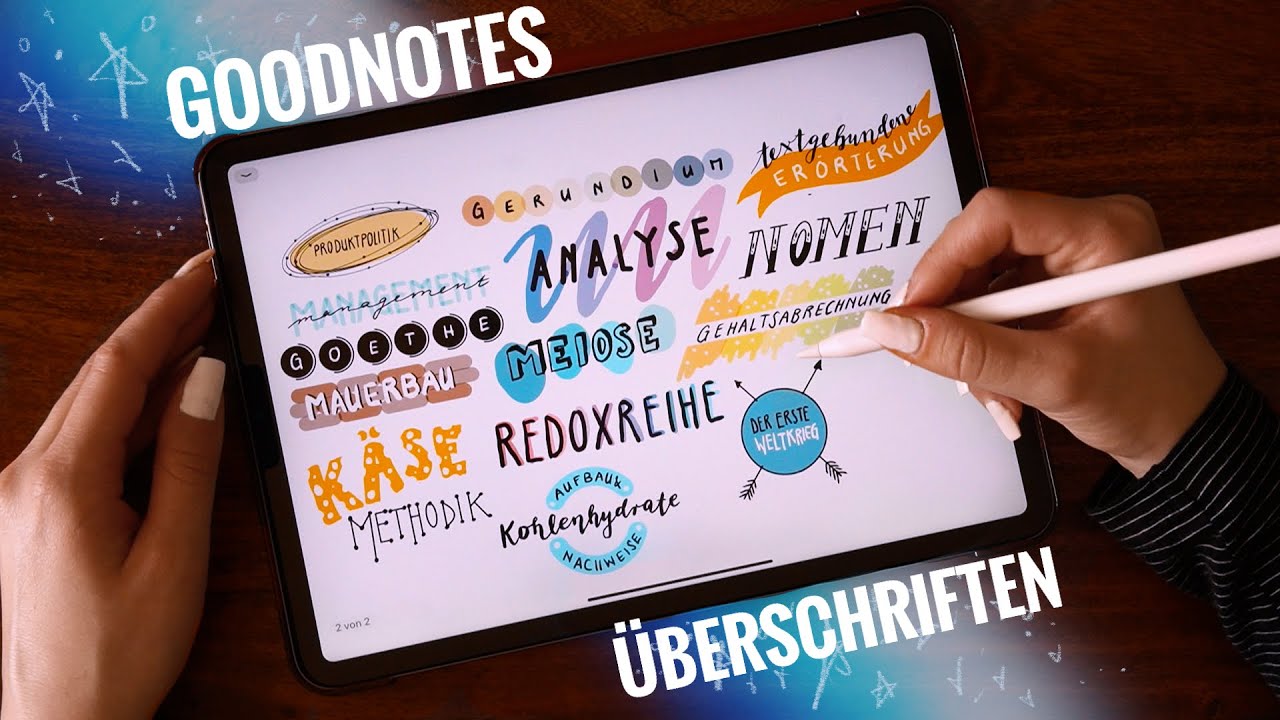 GOODNOTES
textgebundene
ERÖRTERUNG
GERUNDIUM
PRODUKTPOLITIK
ANALYSE
NOMEN
MANAGEMENT
management
GEHALTSABRECHNUNG
GOETHE
MEIOSE
MAUERBAU
REDOXREIHE
DER ERSTE
WELTKRIEG
KÄSE
METHODIK
AUFBAUK
Kohlenhydrate
NACHWEISE
2 von 2
ÜBERSCHRIFTEN